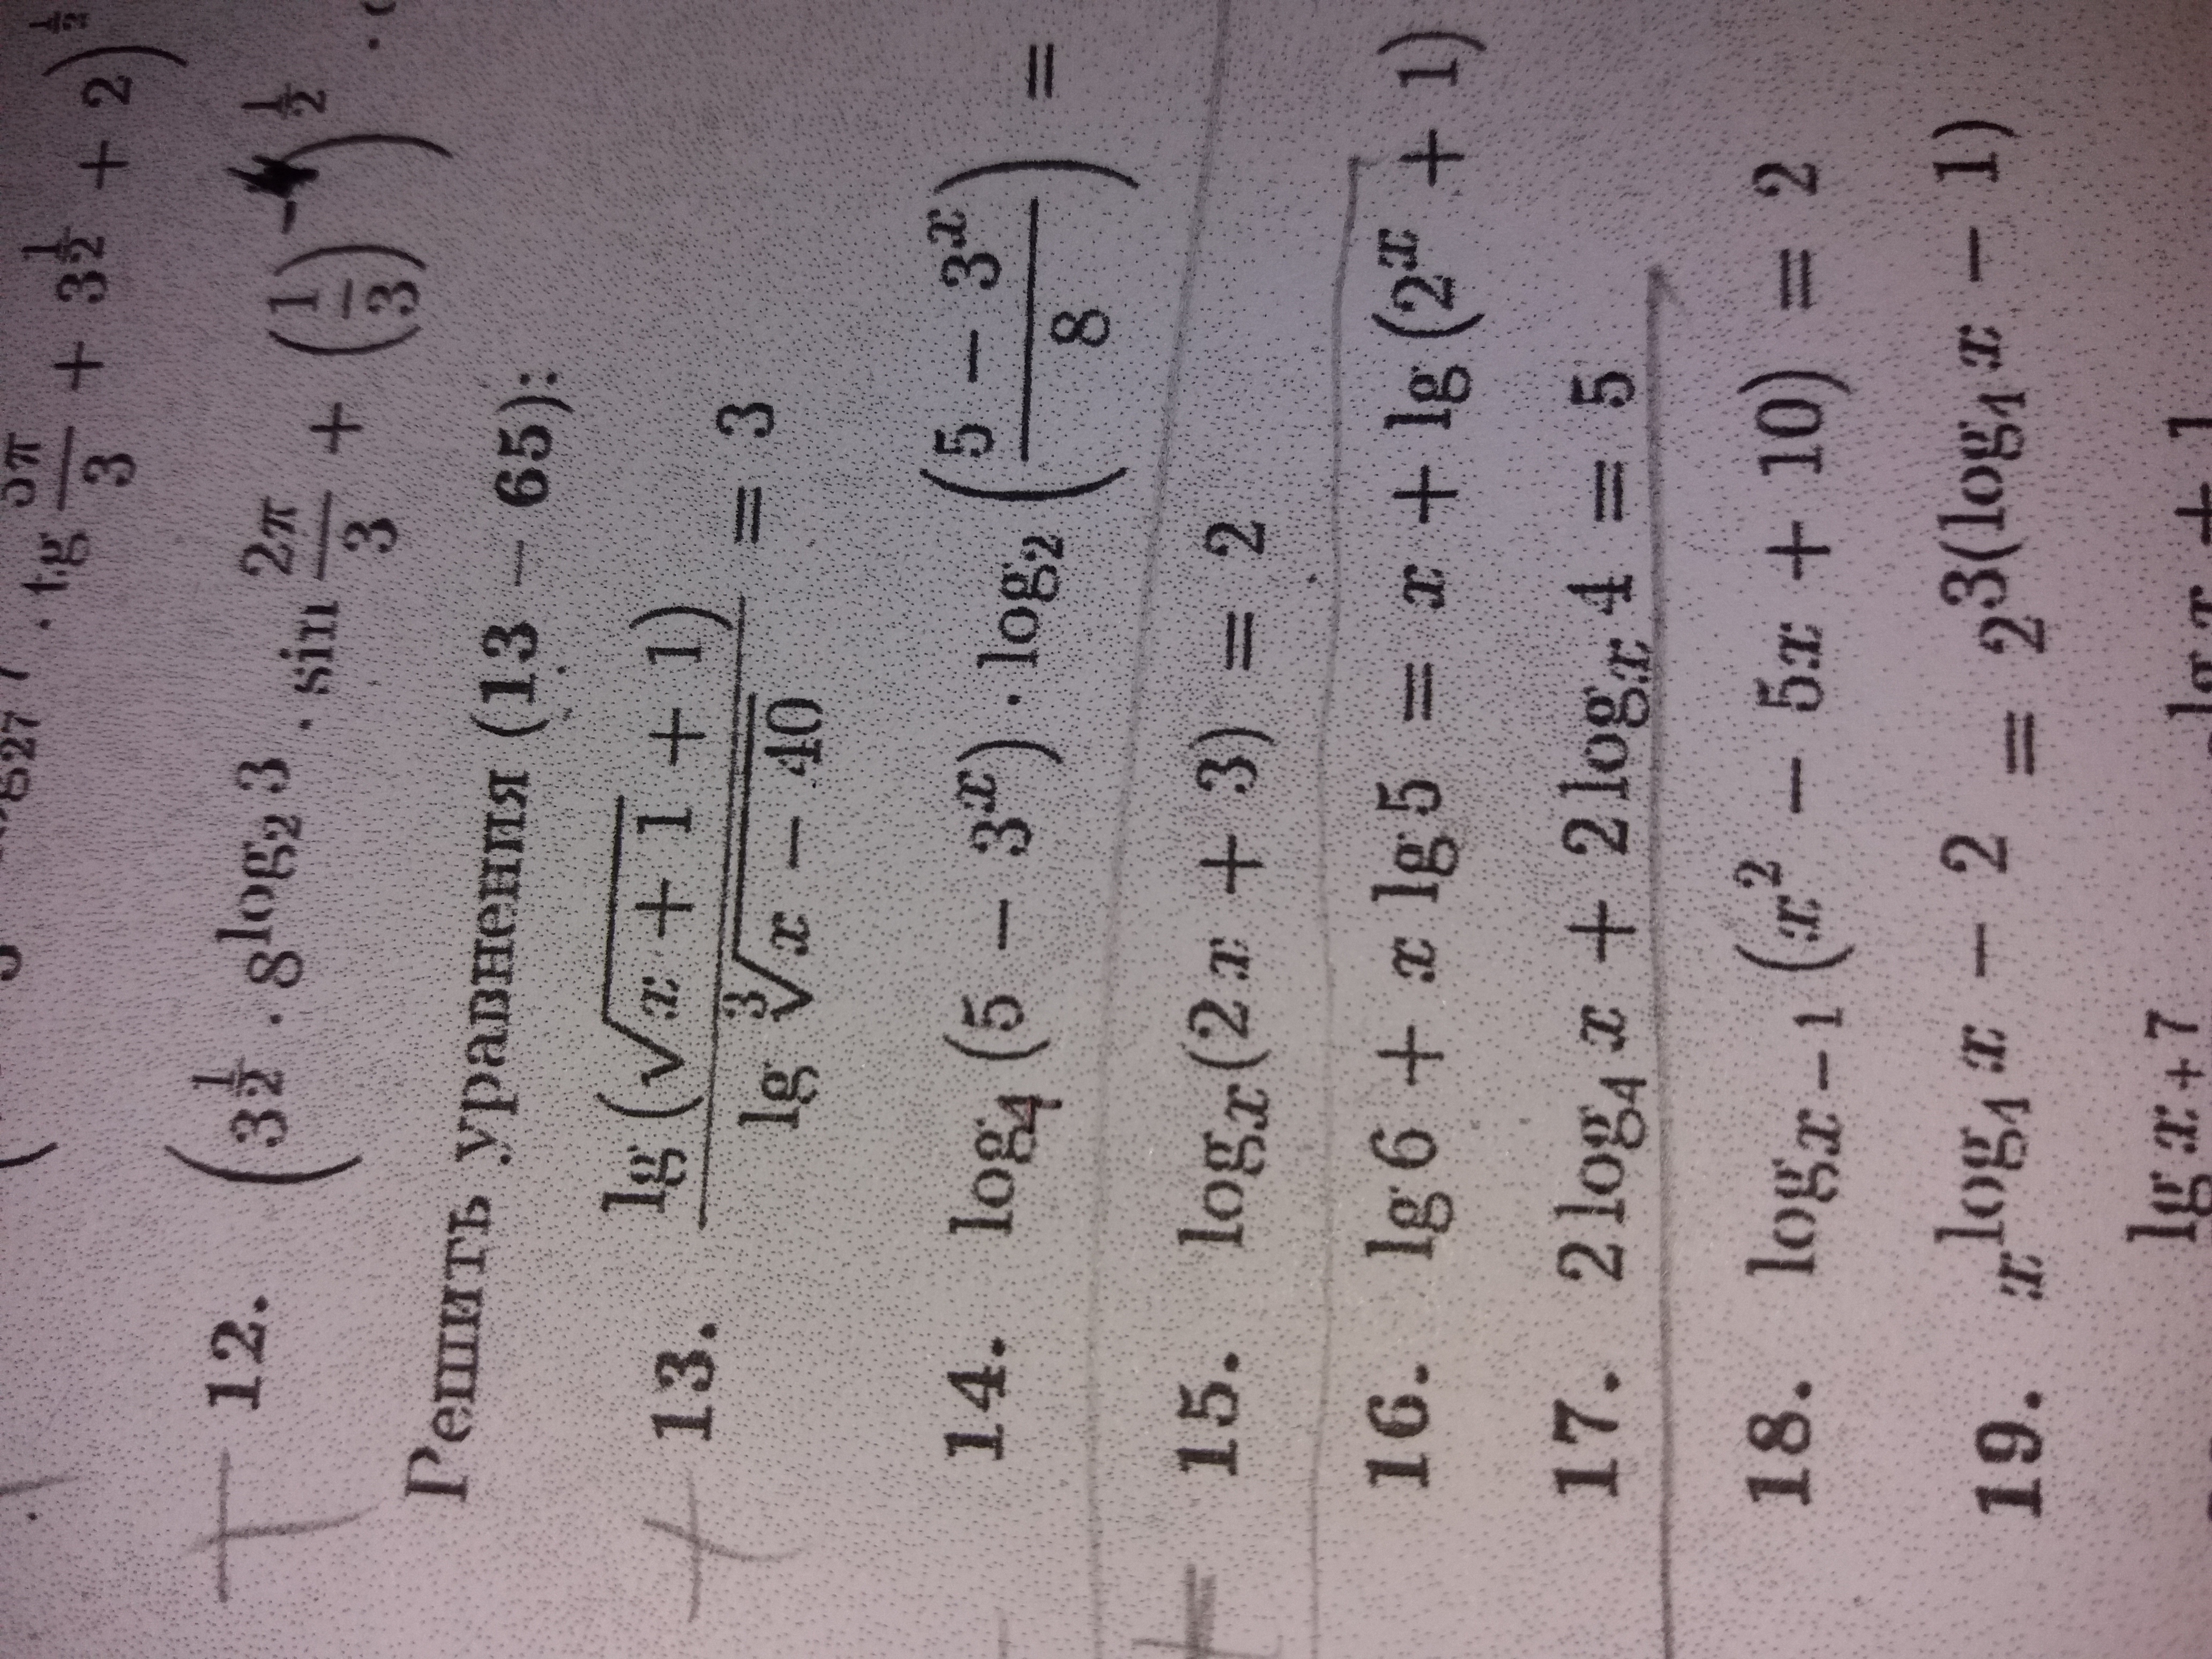 12. (3^{\frac{1}{2}} · 8^{log_2 3} · sin \frac{2π}{3} + (\frac{1}{3})
Решить уравнения (13 – 65):
13. \frac{lg (\sqrt{x + 1} + 1)}{lg \sqrt[3]{x - 40}} = 3
14. log_4 (5 − 3^x) · log_2 (\frac{5 − 3^x}{8}) =
15. log_x (2x + 3) = 2
16. lg 6 + x lg 5 = x + lg (2^x + 1)
17. 2 log_4 x + 2 log_x 4 = 5
18. log_{x−1} (x^2 − 5x + 10) = 2
19. x^{log_4 x − 2} = 2^{3(log_4 x − 1)}
lg x + 7